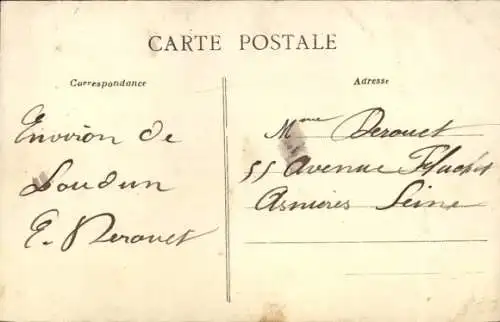 CARTE POSTALE
Correspondance
Environ de
Loudun
E. Derouet
Adresse
Mme Derouet
55 Avenue
Asnieres Seine